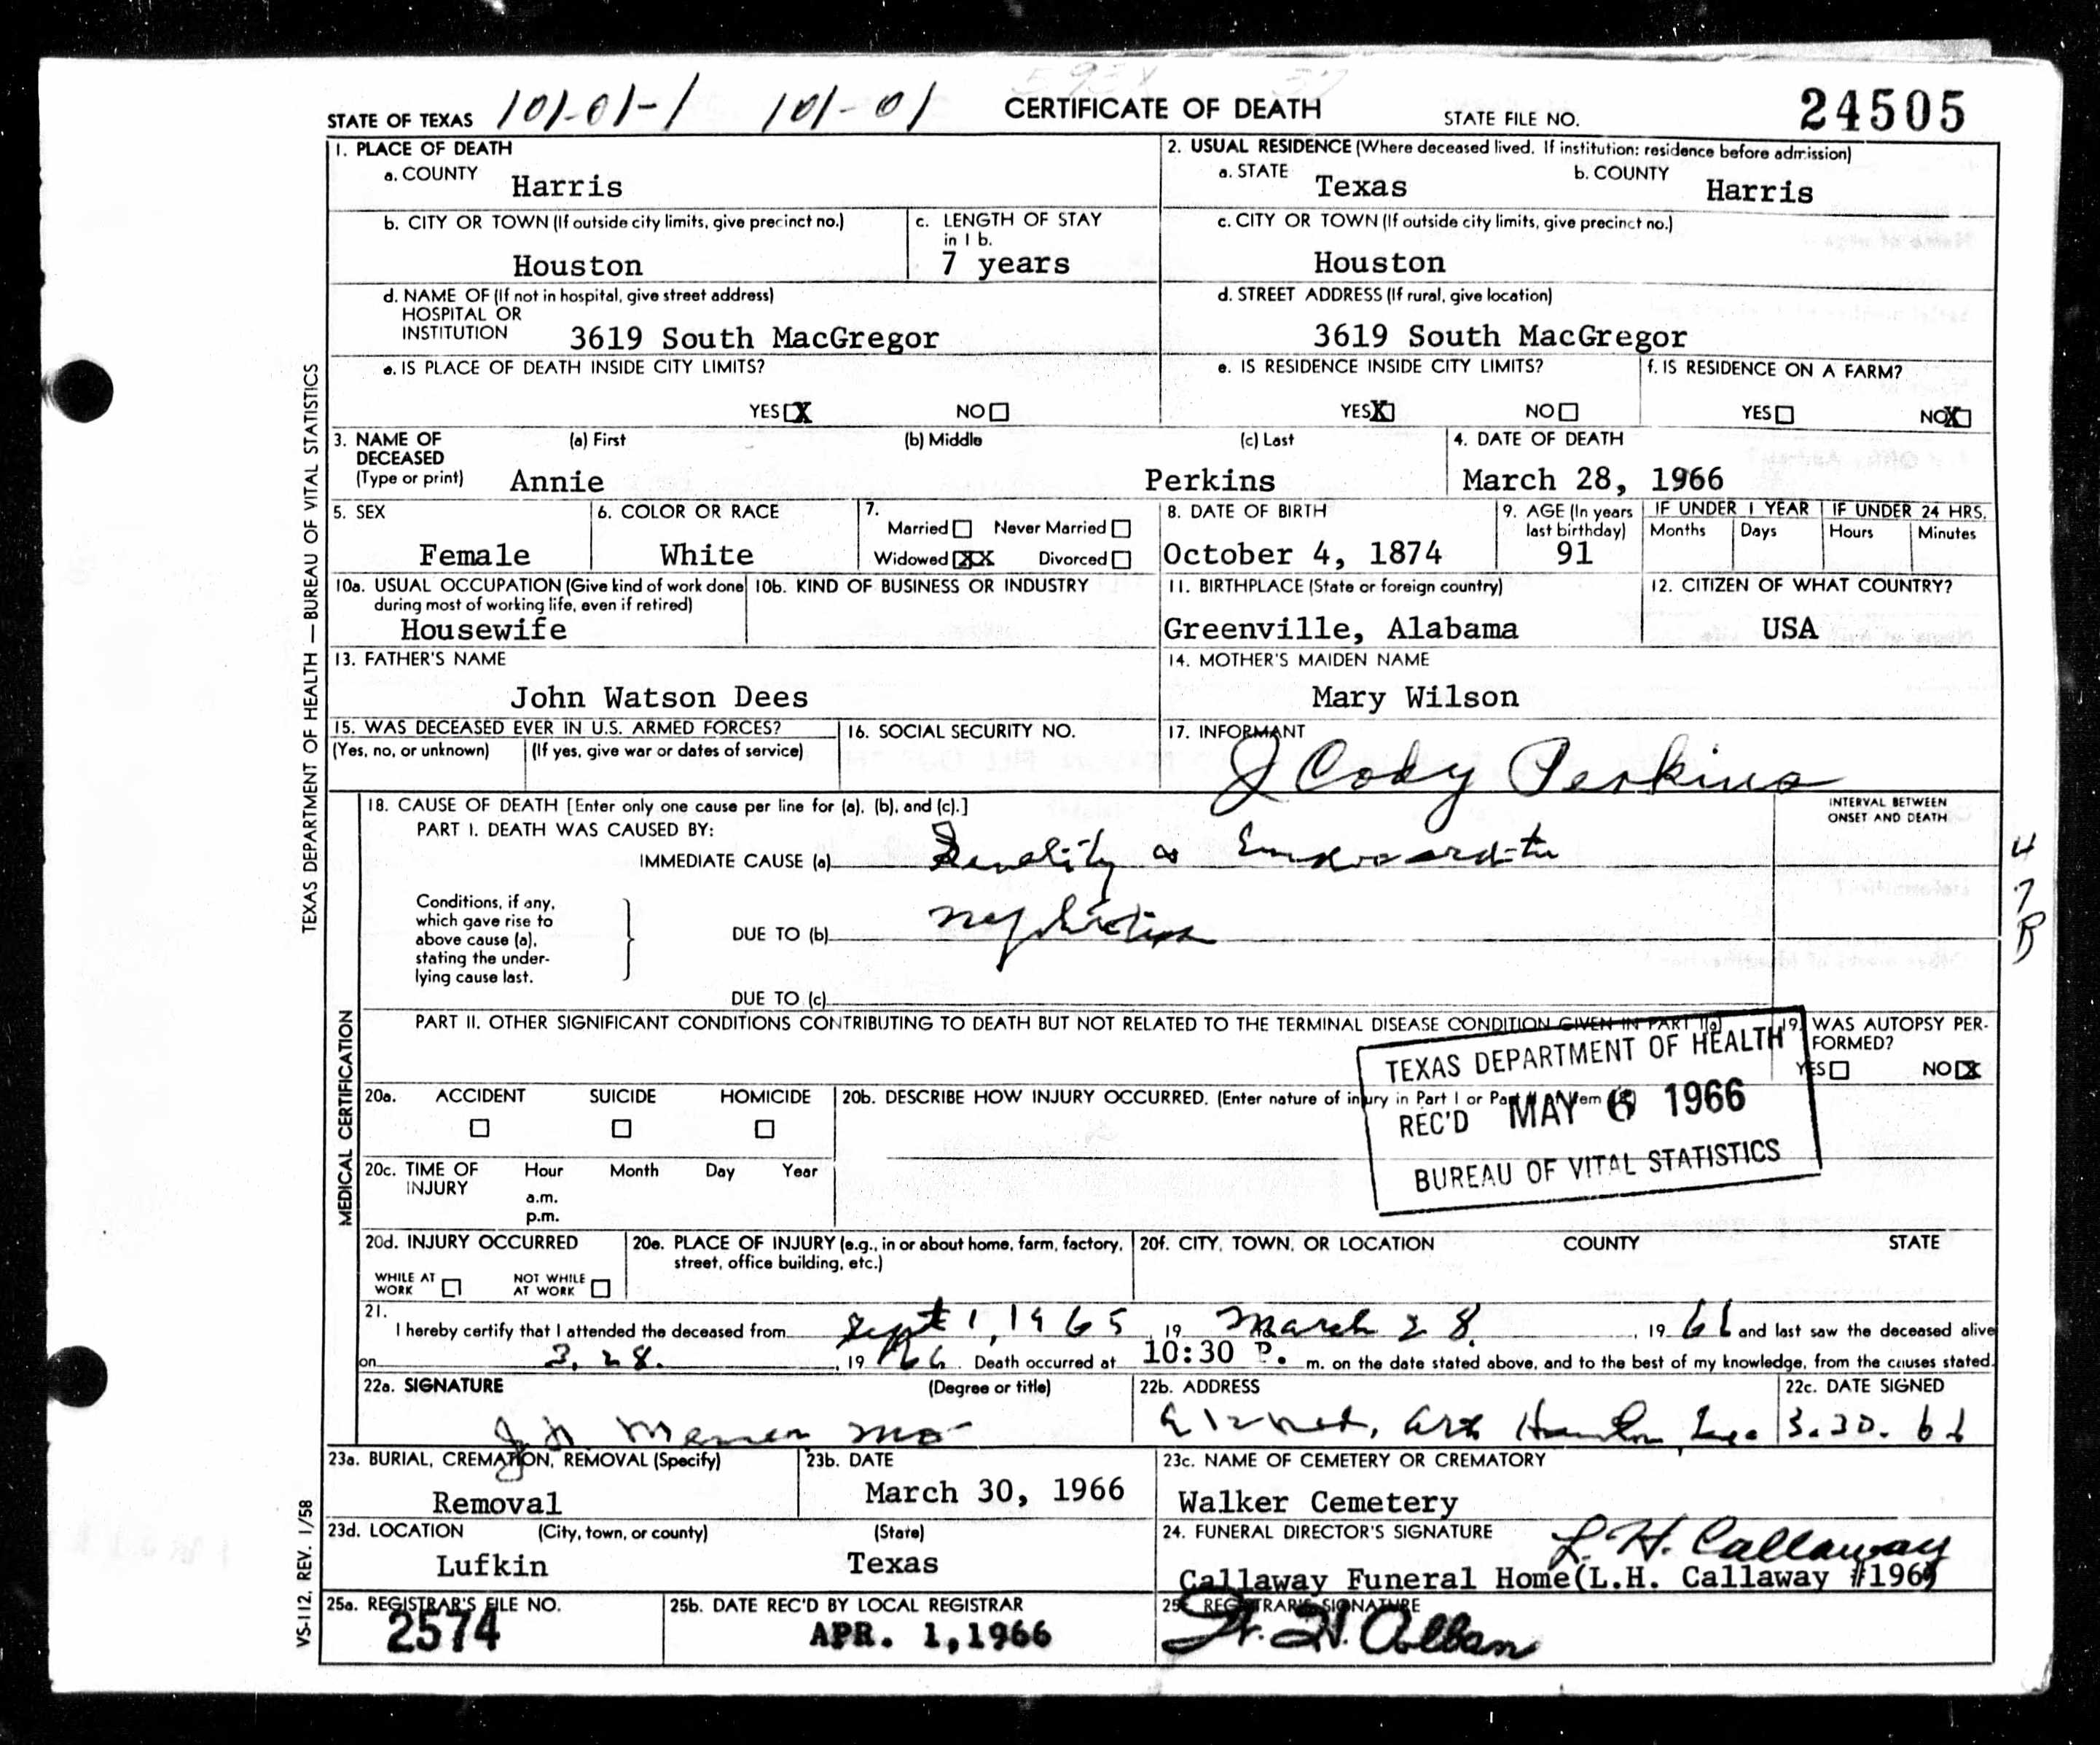 STATE OF TEXAS 101-01-1 101-01 CERTIFICATE OF DEATH STATE FILE NO. 24505
1. PLACE OF DEATH
a. COUNTY Harris
2. USUAL RESIDENCE (Where deceased lived. If institution: residence before admission)
a. STATE Texas b. COUNTY Harris
b. CITY OR TOWN (If outside city limits, give precinct no.) Houston
c. LENGTH OF STAY in 1 b. 7 years
c. CITY OR TOWN (If outside city limits, give precinct no.) Houston
d. NAME OF (If not in hospital, give street address)
HOSPITAL OR
INSTITUTION 3619 South MacGregor
d. STREET ADDRESS (If rural, give location)
3619 South MacGregor
e. IS PLACE OF DEATH INSIDE CITY LIMITS?
YES X NO
e. IS RESIDENCE INSIDE CITY LIMITS?
YES X NO
f. IS RESIDENCE ON A FARM?
YES NO X
3. NAME OF DECEASED (Type or print)
(a) First (b) Middle (c) Last
Annie Perkins
4. DATE OF DEATH
March 28, 1966
5. SEX
Female
6. COLOR OR RACE
White
7.
Married Never Married
Widowed XX Divorced
8. DATE OF BIRTH
October 4, 1874
9. AGE (In years last birthday)
91
IF UNDER 1 YEAR
Months Days
IF UNDER 24 HRS.
Hours Minutes
10a. USUAL OCCUPATION (Give kind of work done
during most of working life, even if retired)
Housewife
10b. KIND OF BUSINESS OR INDUSTRY
11. BIRTHPLACE (State or foreign country)
Greenville, Alabama
12. CITIZEN OF WHAT COUNTRY?
USA
13. FATHER'S NAME
John Watson Dees
14. MOTHER'S MAIDEN NAME
Mary Wilson
15. WAS DECEASED EVER IN U.S. ARMED FORCES?
(Yes, no, or unknown) (If yes, give war or dates of service)
16. SOCIAL SECURITY NO.
17. INFORMANT
J Cody Perkins
18. CAUSE OF DEATH [Enter only one cause per line for (a), (b), and (c).]
INTERVAL BETWEEN
ONSET AND DEATH
PART I. DEATH WAS CAUSED BY:
IMMEDIATE CAUSE (a)
Conditions, if any,
which gave rise to
above cause (a),
stating the under-
lying cause last.
DUE TO (b)
DUE TO (c)
4
7
B
PART II. OTHER SIGNIFICANT CONDITIONS CONTRIBUTING TO DEATH BUT NOT RELATED TO THE TERMINAL DISEASE CONDITION GIVEN IN PART I(a)
19. WAS AUTOPSY PER-
FORMED?
YES NO X
TEXAS DEPARTMENT OF HEALTH
REC'D MAY 6 1966
BUREAU OF VITAL STATISTICS
20a. ACCIDENT SUICIDE HOMICIDE
20b. DESCRIBE HOW INJURY OCCURRED. (Enter nature of injury in Part I or Part
20c. TIME OF INJURY
Hour Month Day Year
a.m.
p.m.
20d. INJURY OCCURRED
WHILE AT WORK NOT WHILE AT WORK
20e. PLACE OF INJURY (e.g., in or about home, farm, factory,
street, office building, etc.)
20f. CITY, TOWN, OR LOCATION COUNTY STATE
21.
I hereby certify that I attended the deceased from Sept 1, 1965, 19 March 28, 1966 and last saw the deceased alive
on 3.28., 1966. Death occurred at 10:30 P. m. on the date stated above, and to the best of my knowledge, from the causes stated.
22a. SIGNATURE (Degree or title)
22b. ADDRESS
22c. DATE SIGNED
3.30.66
23a. BURIAL, CREMATION, REMOVAL (Specify)
Removal
23b. DATE
March 30, 1966
23c. NAME OF CEMETERY OR CREMATORY
Walker Cemetery
23d. LOCATION (City, town, or county) (State)
Lufkin Texas
24. FUNERAL DIRECTOR'S SIGNATURE
L. H. Callaway
Callaway Funeral Home(L.H. Callaway #1969
25a. REGISTRAR'S FILE NO.
2574
25b. DATE REC'D BY LOCAL REGISTRAR
APR. 1, 1966
25c REGISTRAR'S SIGNATURE
TEXAS DEPARTMENT OF HEALTH — BUREAU OF VITAL STATISTICS
MEDICAL CERTIFICATION
VS-112, REV. 1/58